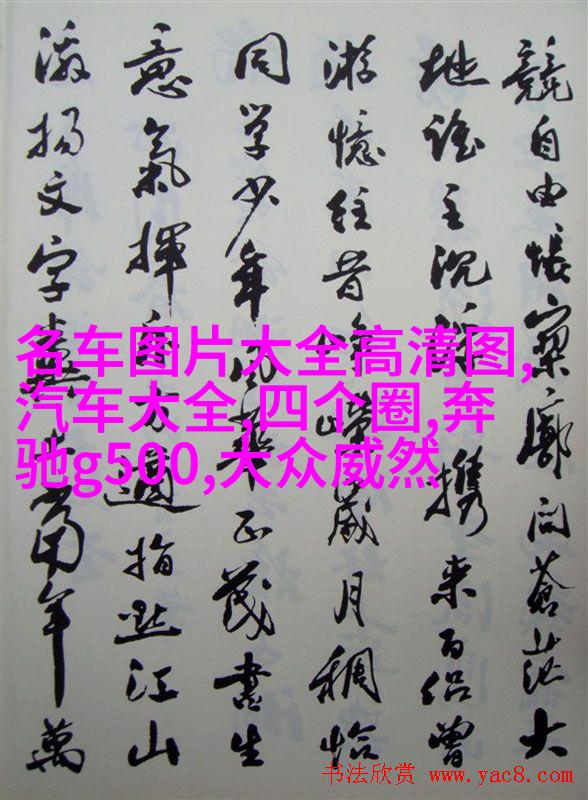 競自由悵寥廓问蒼茫大
地谁主沉浮携来百侣曾
游憶往昔崢嶸歲月稠恰
同学少年风華正茂書生
意氣揮斥方遒指點江山
激揚文字糞土當年萬
名车图片大全高清图,
汽车大全,四个圈,奔
驰g500,大众威然
书法欣赏 www.yac8.com